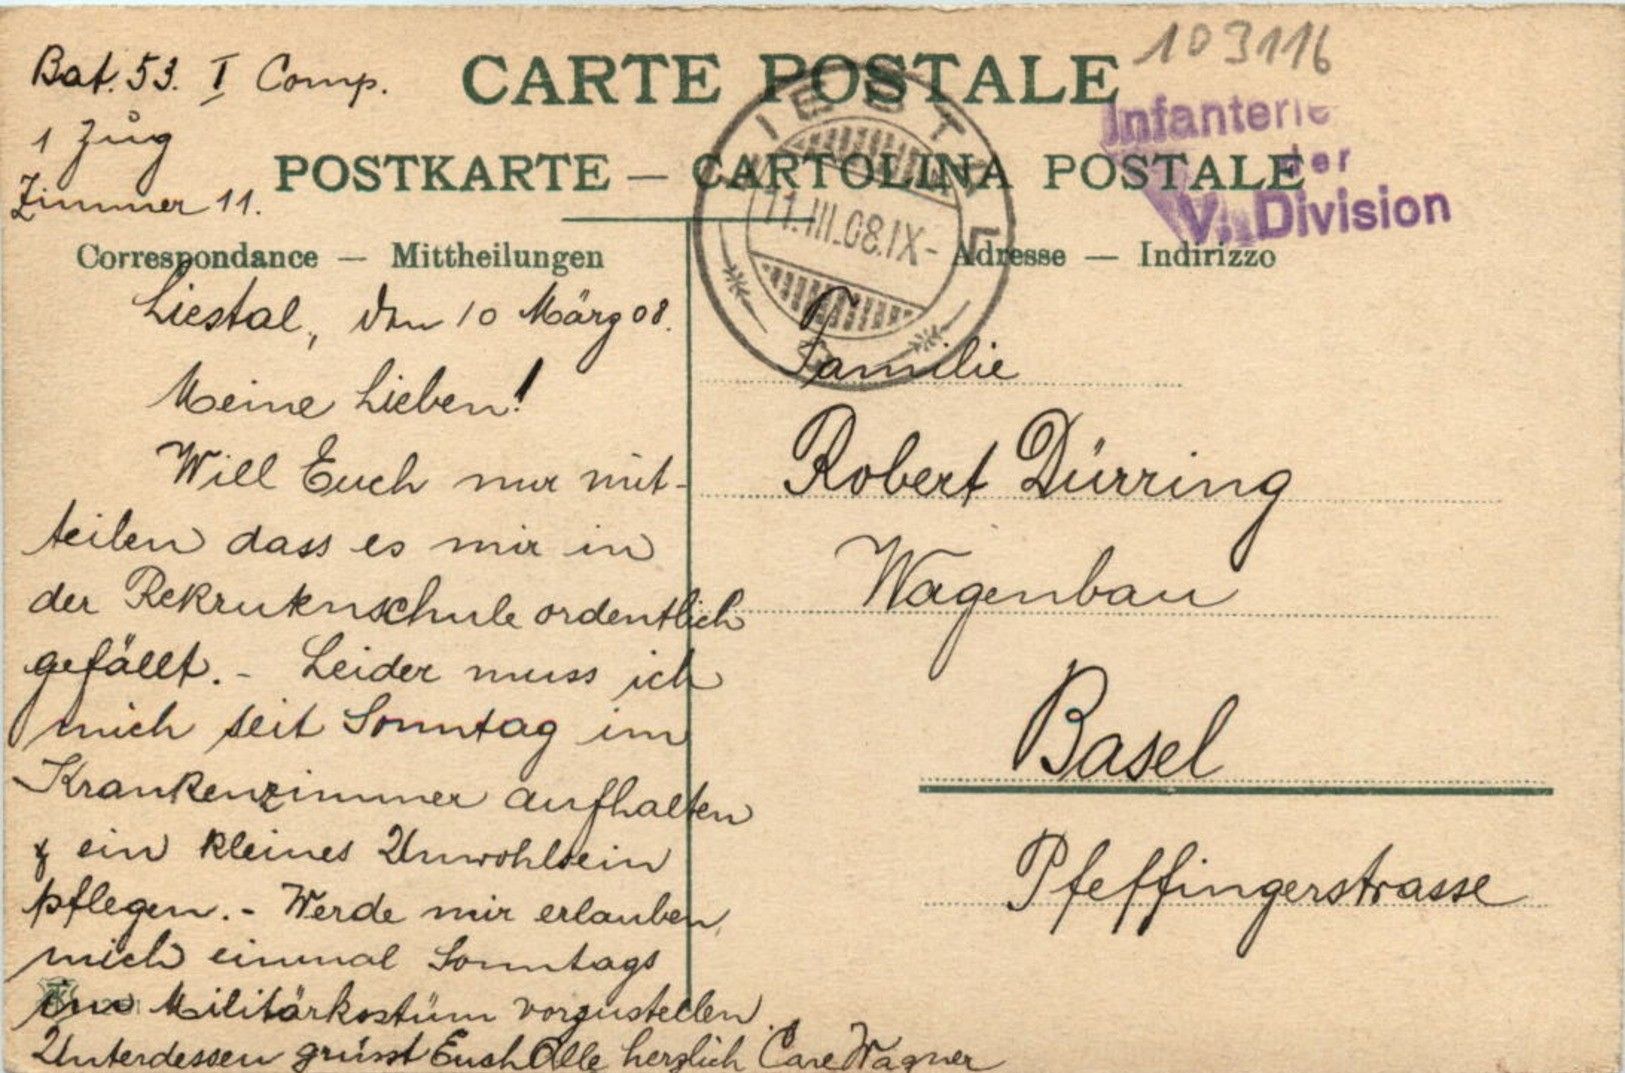 103116
Bat. 53. I Comp.
1 Zug
Zimmer 11.
CARTE POSTALE
POSTKARTE — CARTOLINA POSTALE
Infanterie
der
V. Division
LIESTAL
11.III.08.IX-
Correspondance — Mittheilungen
Adresse — Indirizzo
Liestal, den 10 März 08.
Meine Lieben!
Will Euch nur mit-
teilen dass es mir in
der Rekrutenschule ordentlich
gefällt. - Leider muss ich
mich seit Sonntag im
Krankenzimmer aufhalten
& ein kleines Unwohlsein
pflegen. - Werde mir erlauben,
mich einmal Sonntags
im Militärkostüm vorzustellen.
Unterdessen grüsst Euch Alle herzlich Carl Wagner
Familie
Robert Dürring
Wagenbau
Basel
Pfeffingerstrasse